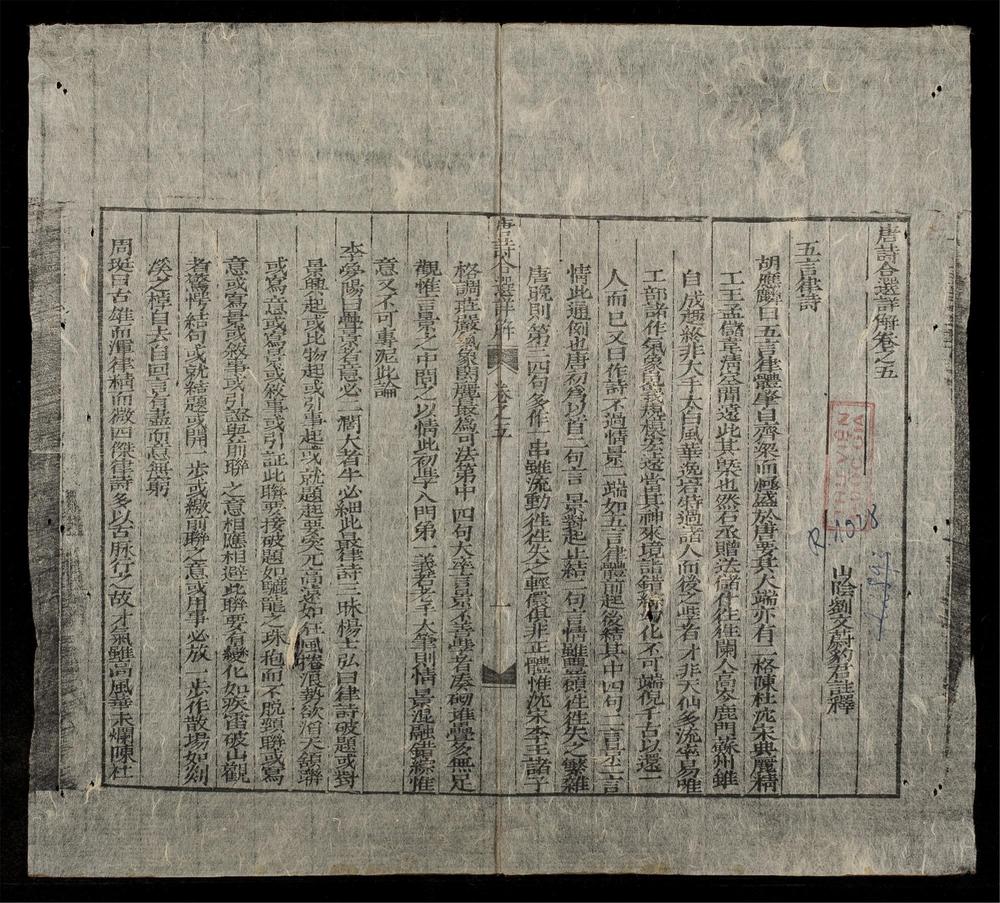 唐詩合選詳解卷之五
山陰劉文蔚豹君註釋
五言律詩
胡應麟曰五言律體肇自齊梁而極盛於唐要其大端亦有二格陳杜沈宋典麗精
工王孟儲韋清空閒遠此其槩也然右丞贈送諸什往往闌入高岑鹿門蘇州雖
自成趣終非大手太白風華逸宕特過諸人而後之匠者才非天仙多流率易唯
工部諸作氣象嵬峩規模宏遠當其神來境詣錯綜幻化不可端倪千古以還一
人而已又曰作詩不過情景二端如五言律體前起後結其中四句二言景二言
情此通例也唐初多以首二句言景對起止結二句言情雖豐碩往往失之繁雜
唐晚則第三四句多作一串雖流動往往失之輕儇俱非正體惟沈宋李王諸子
格調莊嚴氣象閎麗最為可法第中四句大率言景不善學者湊砌堆疊多無足
觀惟言景之中間之以情此初學入門第一義若老手大筆則情景混融錯綜惟
意又不可專泥此論
李夢陽曰疊景者意必二闊大者半必細此最律詩三昧楊士弘曰律詩破題或對
景興起或比物起或引事起或就題起要突兀高遠如狂風捲浪勢欲滔天頷聯
或寫意或寫景或敘事或引証此聯要接破題如驪龍之珠抱而不脫頸聯或寫
意或寫景或敘事或引證與前聯之意相應相避此聯要有變化如疾雷破山觀
者驚愕結句或就結題或開一步或繳前聯之意或用事必放一步作散場如剡
溪之棹自去自回言有盡而意無窮
周珽曰古雄而渾律精而微四傑律詩多以古脉行之故才氣雖高風華未爛陳杜
唐詩合選詳解
卷之五
一
R.1028